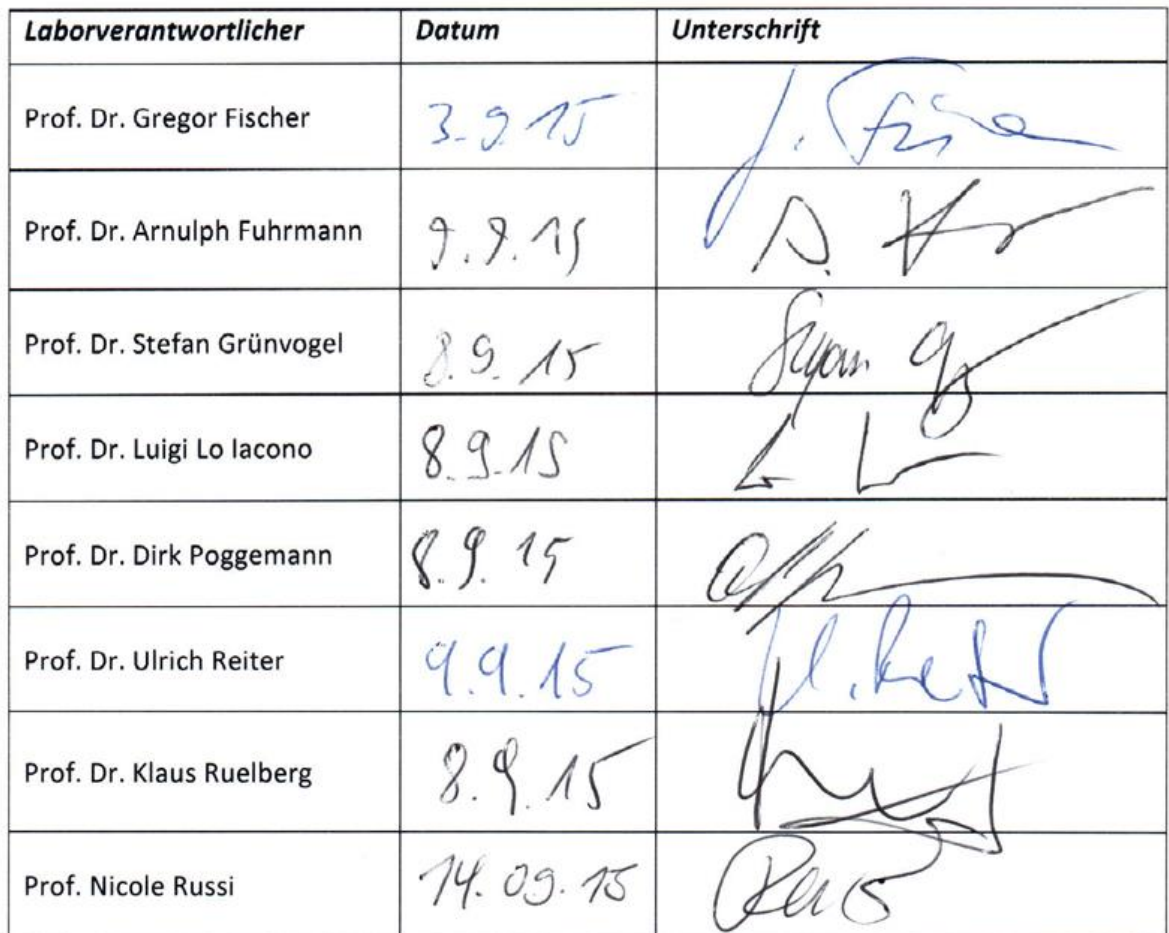 Laborverantwortlicher Datum Unterschrift
Prof. Dr. Gregor Fischer 3.9.15
Prof. Dr. Arnulph Fuhrmann 9.9.15
Prof. Dr. Stefan Grünvogel 8.9.15
Prof. Dr. Luigi Lo Iacono 8.9.15
Prof. Dr. Dirk Poggemann 8.9.15
Prof. Dr. Ulrich Reiter 9.9.15
Prof. Dr. Klaus Ruelberg 8.9.15
Prof. Nicole Russi 14.09.15